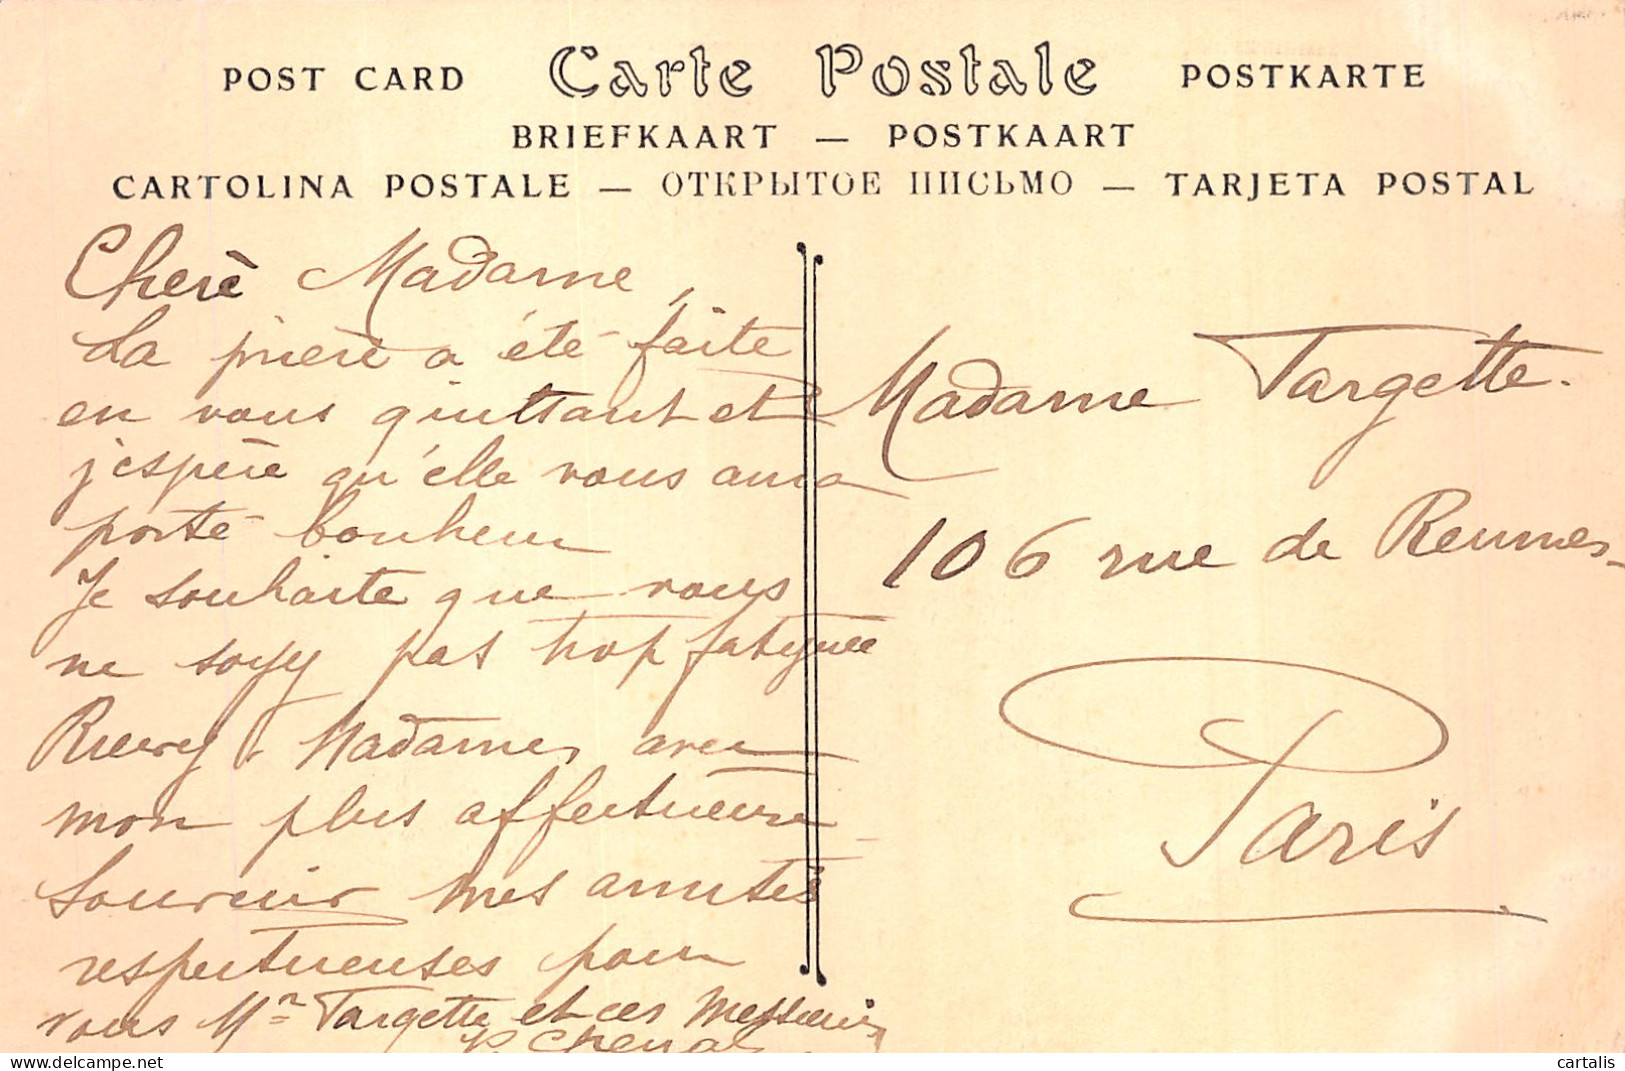 POST CARD Carte Postale POSTKARTE
BRIEFKAART — POSTKAART
CARTOLINA POSTALE — ОТКРЫТОЕ ПИСЬМО — TARJETA POSTAL
Cherè Madame,
La prière a été faite
en vous quittant et
j'espère qu'elle vous aura
porté bonheur
Je souhaite que vous
ne soyez pas trop fatiguée
Recevez, Madame, avec
mon plus affectueux
Souvenir mes amitiés
respectueuses pour
vous Mr Targette et ces Messieurs
Cheval
Madame Targette.
106 rue de Rennes
Paris
cartalis